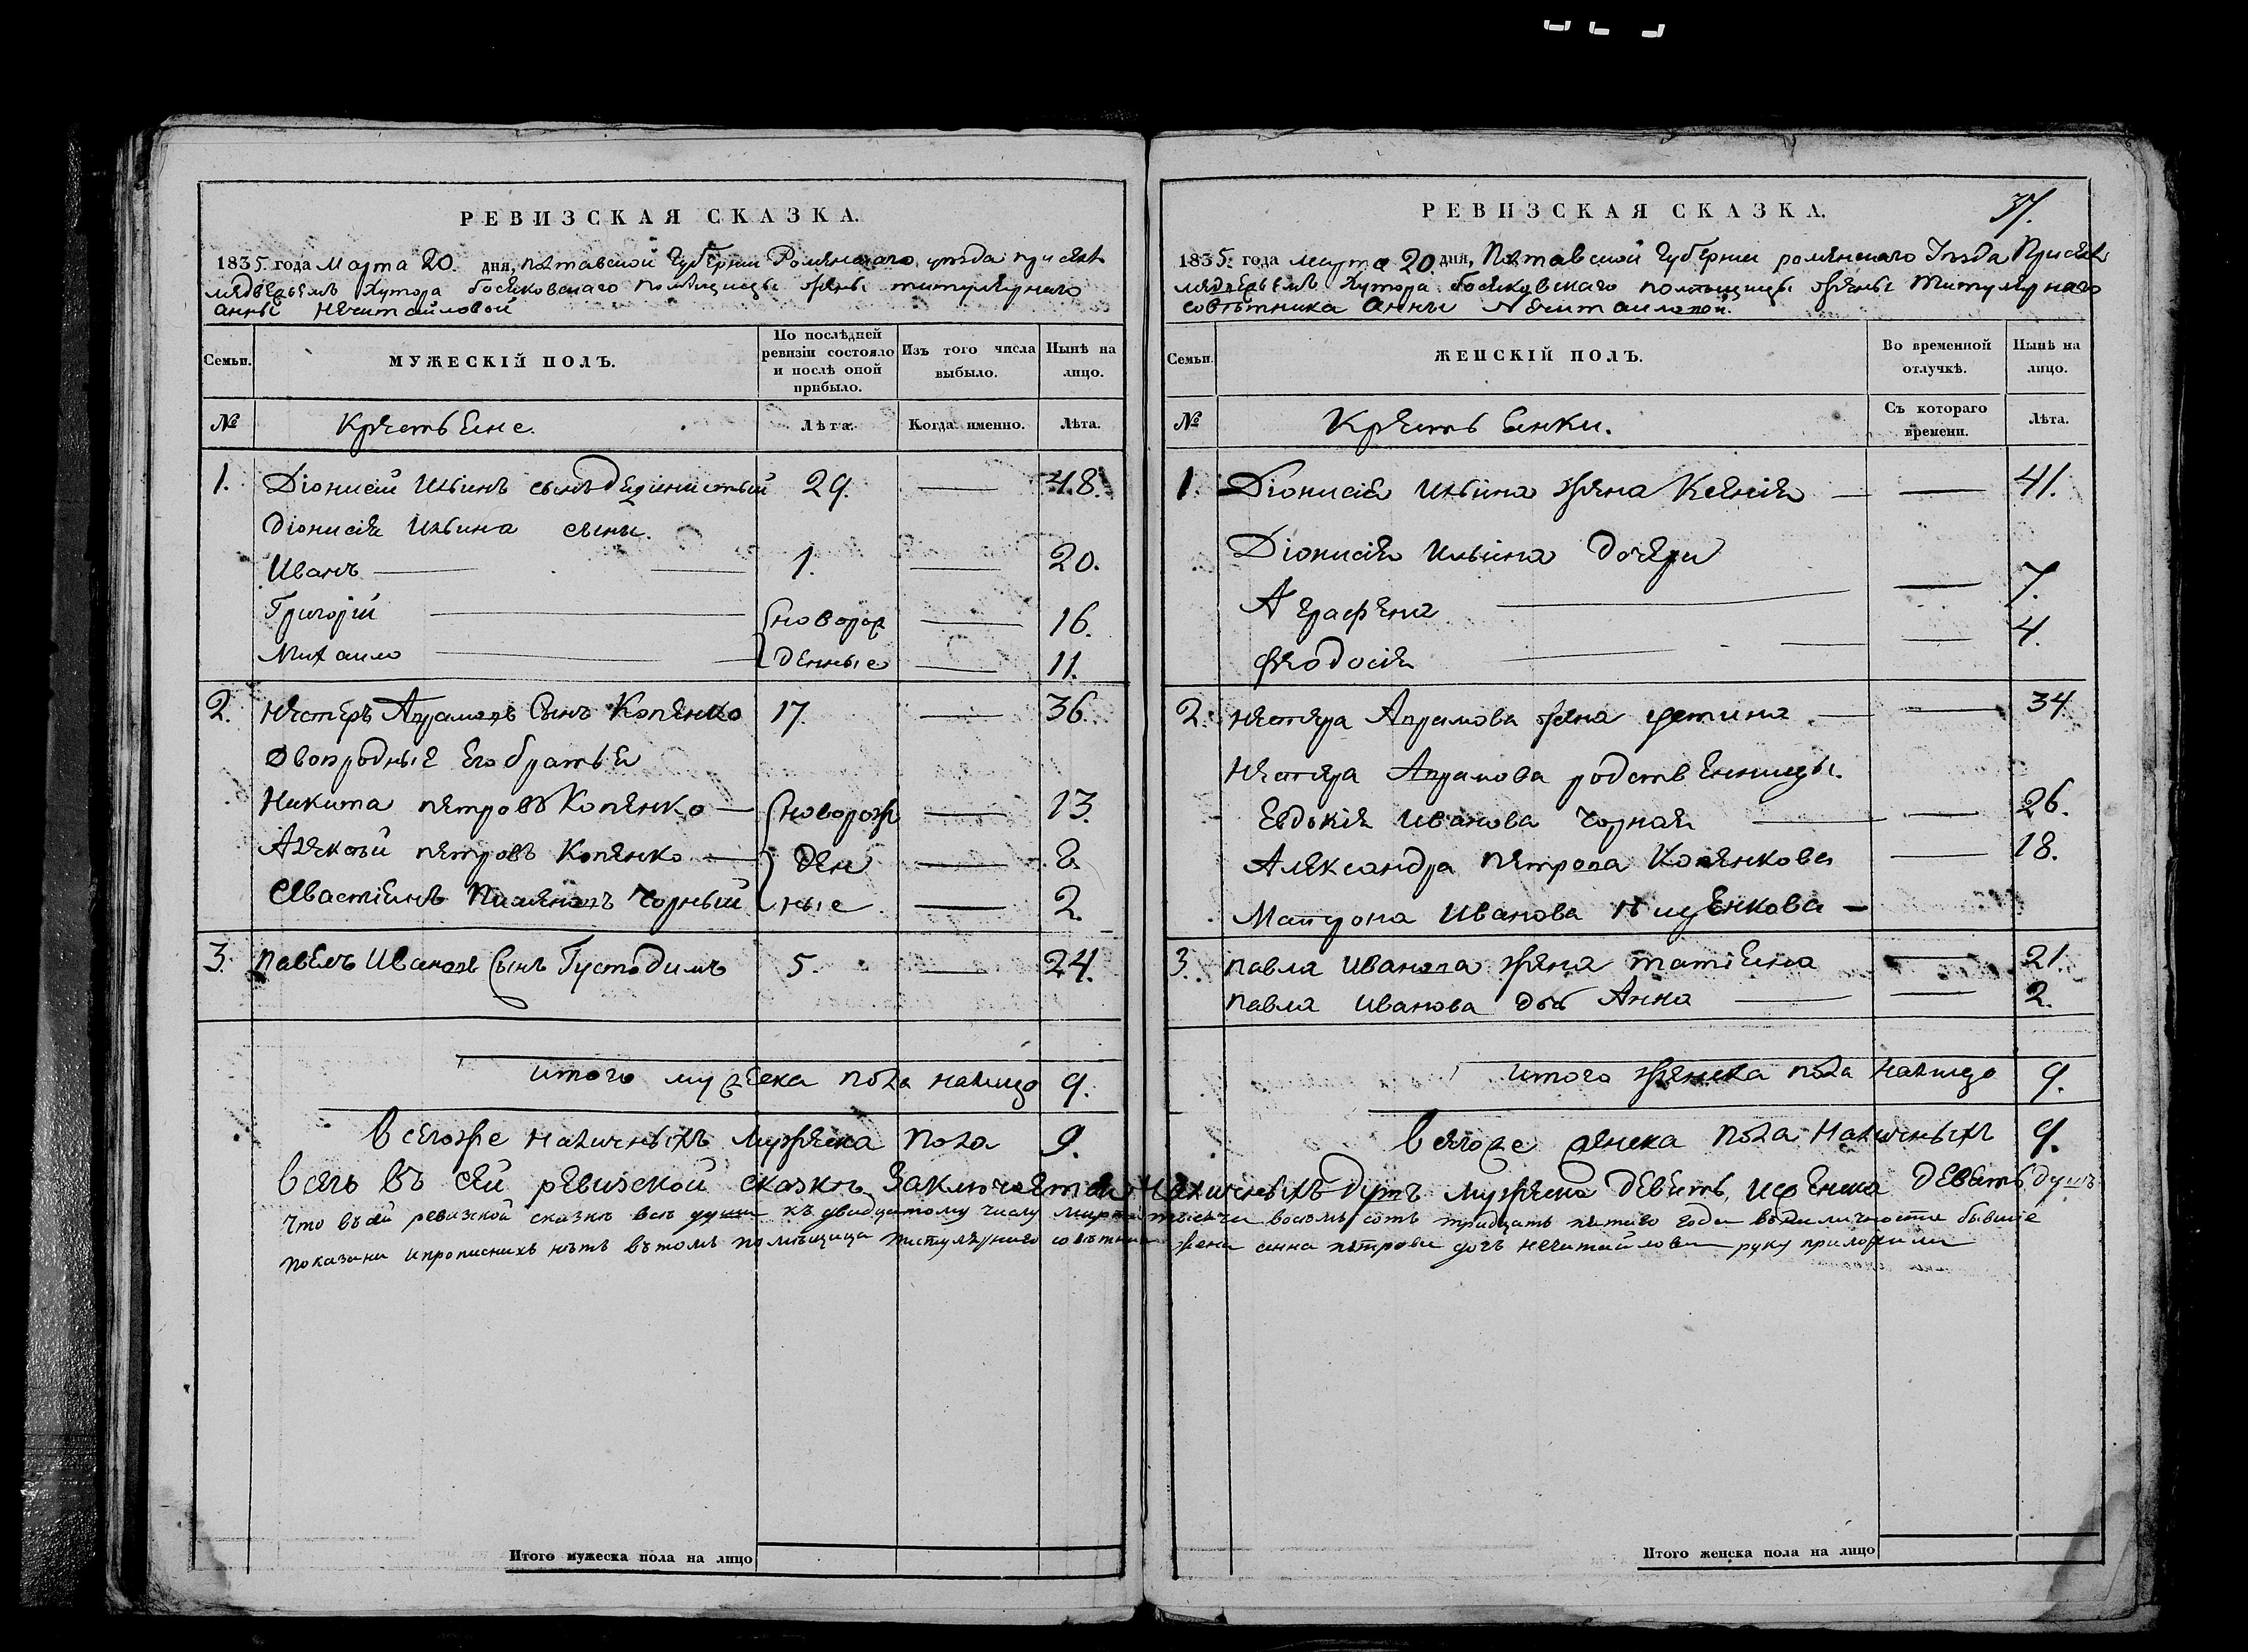 РЕВИЗСКАЯ СКАЗКА.
1835. года Марта 20. дня, Полтавской Губернии Роменскаго уезда при селе
медвежьемъ Хутора помѣщицы жены титулярнаго
анны нечитайловой
Семьи.
МУЖЕСКІЙ ПОЛЪ.
По послѣдней ревизіи состояло и послѣ оной прибыло.
Изъ того числа выбыло.
Нынѣ на лицо.
№
Крестьяне.
Лѣта.
Когда именно.
Лѣта.
1. Діонисій Ильинъ сынъ 29. — 48.
Діонисія Ильина сыны.
Иванъ — 1. — 20.
Григорій — новорож — 16.
Михаило — денные — 11.
2. Нестеръ Апрамовъ Сынъ Копенко 17. — 36.
двоюродные его братья
Никита петровъ Копенко — новорож — 13.
Алексѣй петровъ Копенко — ден — 8.
Севастіянъ Чорный ные — 2.
3. павелъ Ивановъ Сынъ Густодимъ 5. — 24.
итого мужеска пола налицо 9.
всегоже наличныхъ мужеска пола 9.
РЕВИЗСКАЯ СКАЗКА.
37.
1835. года марта 20. дня, Полтавской губернии роменскаго Уѣзда При селе
медвежьемъ Хутора помѣщицы жены Титулярнаго
совѣтника Анны Нечитаиловой.
Семьи.
ЖЕНСКІЙ ПОЛЪ.
Во временной отлучкѣ.
Нынѣ на лицо.
№
Крестьянки.
Съ котораго времени.
Лѣта.
1. Діонисія Ильина жена Ксенія — 41.
Діонисія Ильина дочери
Аграфена — 7.
Феодосія — 4.
2. нестера Апрамова жена устина — 34
Нестера Апрамова родственницы.
Евдокія Иванова Чорная — 26.
Александра петрова Копенкова — 18.
Матрона Иванова —
3. павла Иванова жена татіяна — 21.
павла Иванова дочь Анна — 2.
итого женска пола налицо 9.
всегоже женска пола наличныхъ 9.
всего въ сей ревизской сказкѣ заключается наличныхъ душъ мужеска девять, и женска девять душъ
что въ сей ревизской сказкѣ все души къ двадцатому числу марта тысяча восемь сотъ тридцать пятаго года въ наличности бывшие
показаны и прописныхъ нѣтъ въ томъ помѣщица титулярнаго советника жена анна петрова дочь нечитайлова руку приложила
Итого мужеска пола на лицо
Итого женска пола на лицо